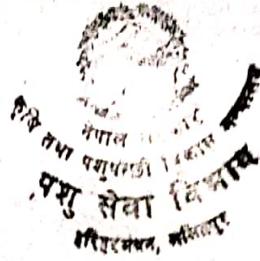 नेपाल
कृषि तथा पशुपन्छी विकास
पशु सेवा विभाग
हरिहरभवन, ललितपुर